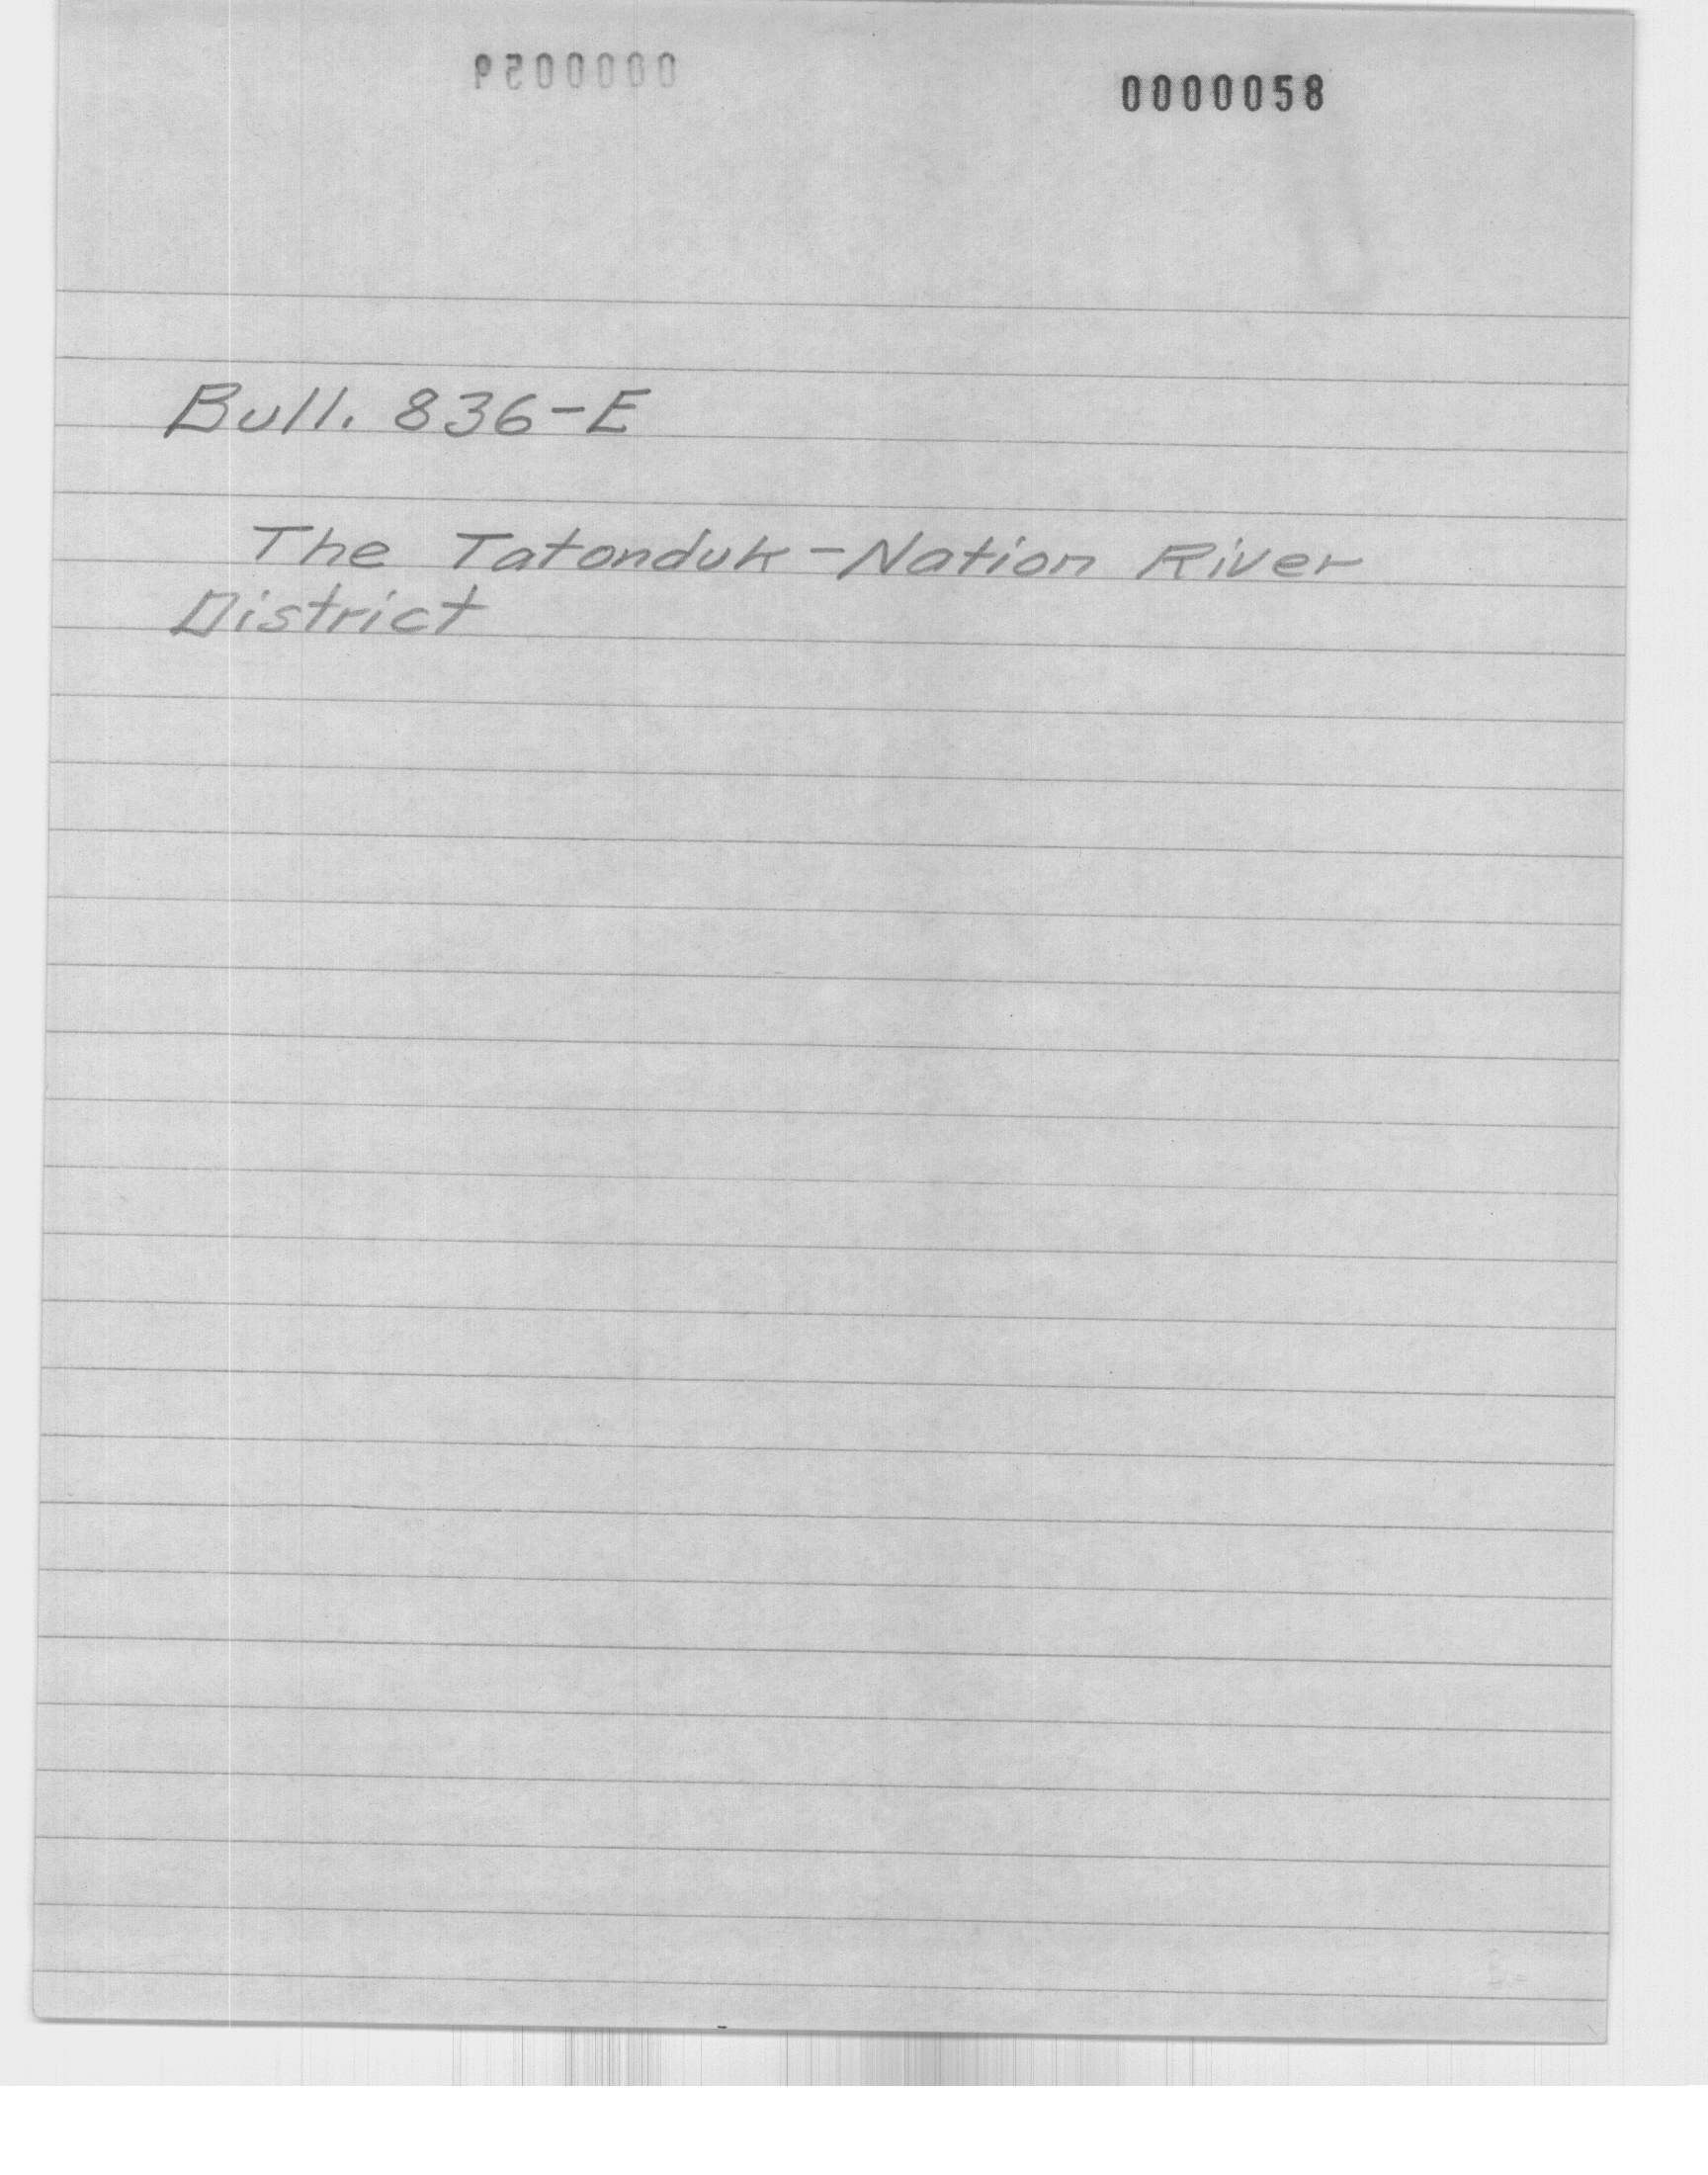 0000059
0000058
Bull. 836-E
The Tatonduk-Nation River
District